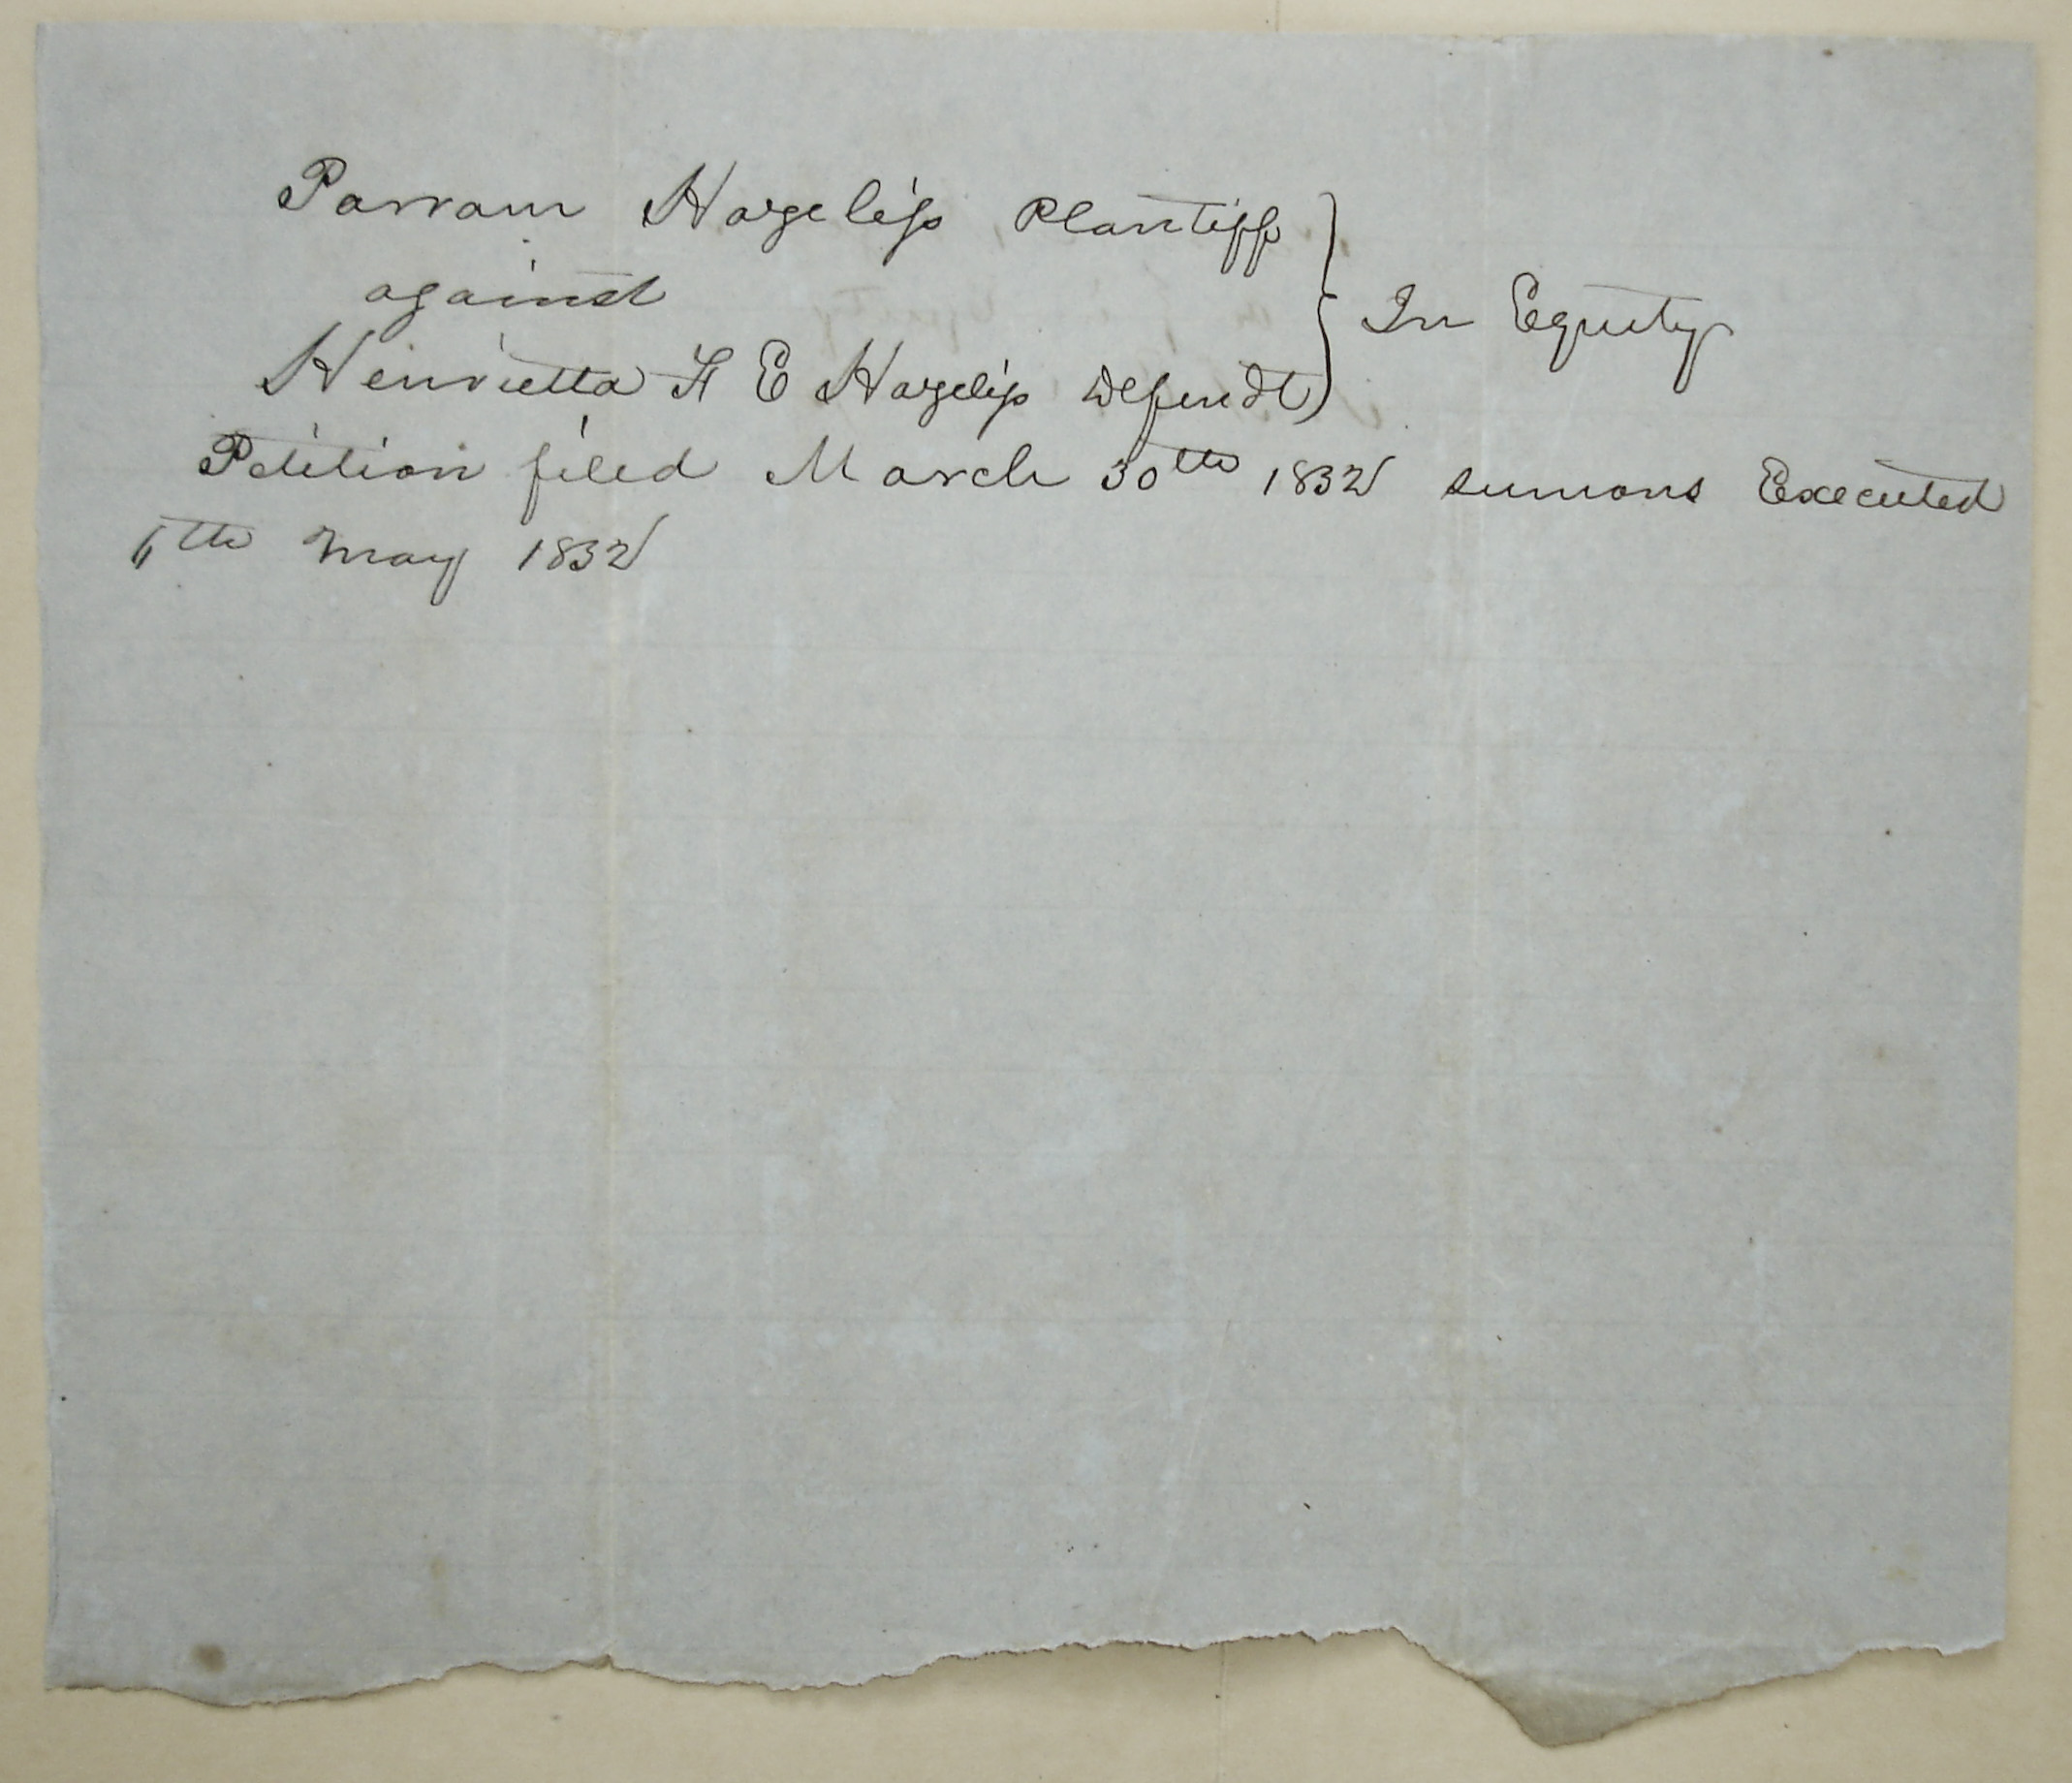 Parram Hazelip Plantiff
against
In Equity
Henrietta F E Hazelip Defendt
Petition filed March 30th 1832 sumons Executed
May 1832